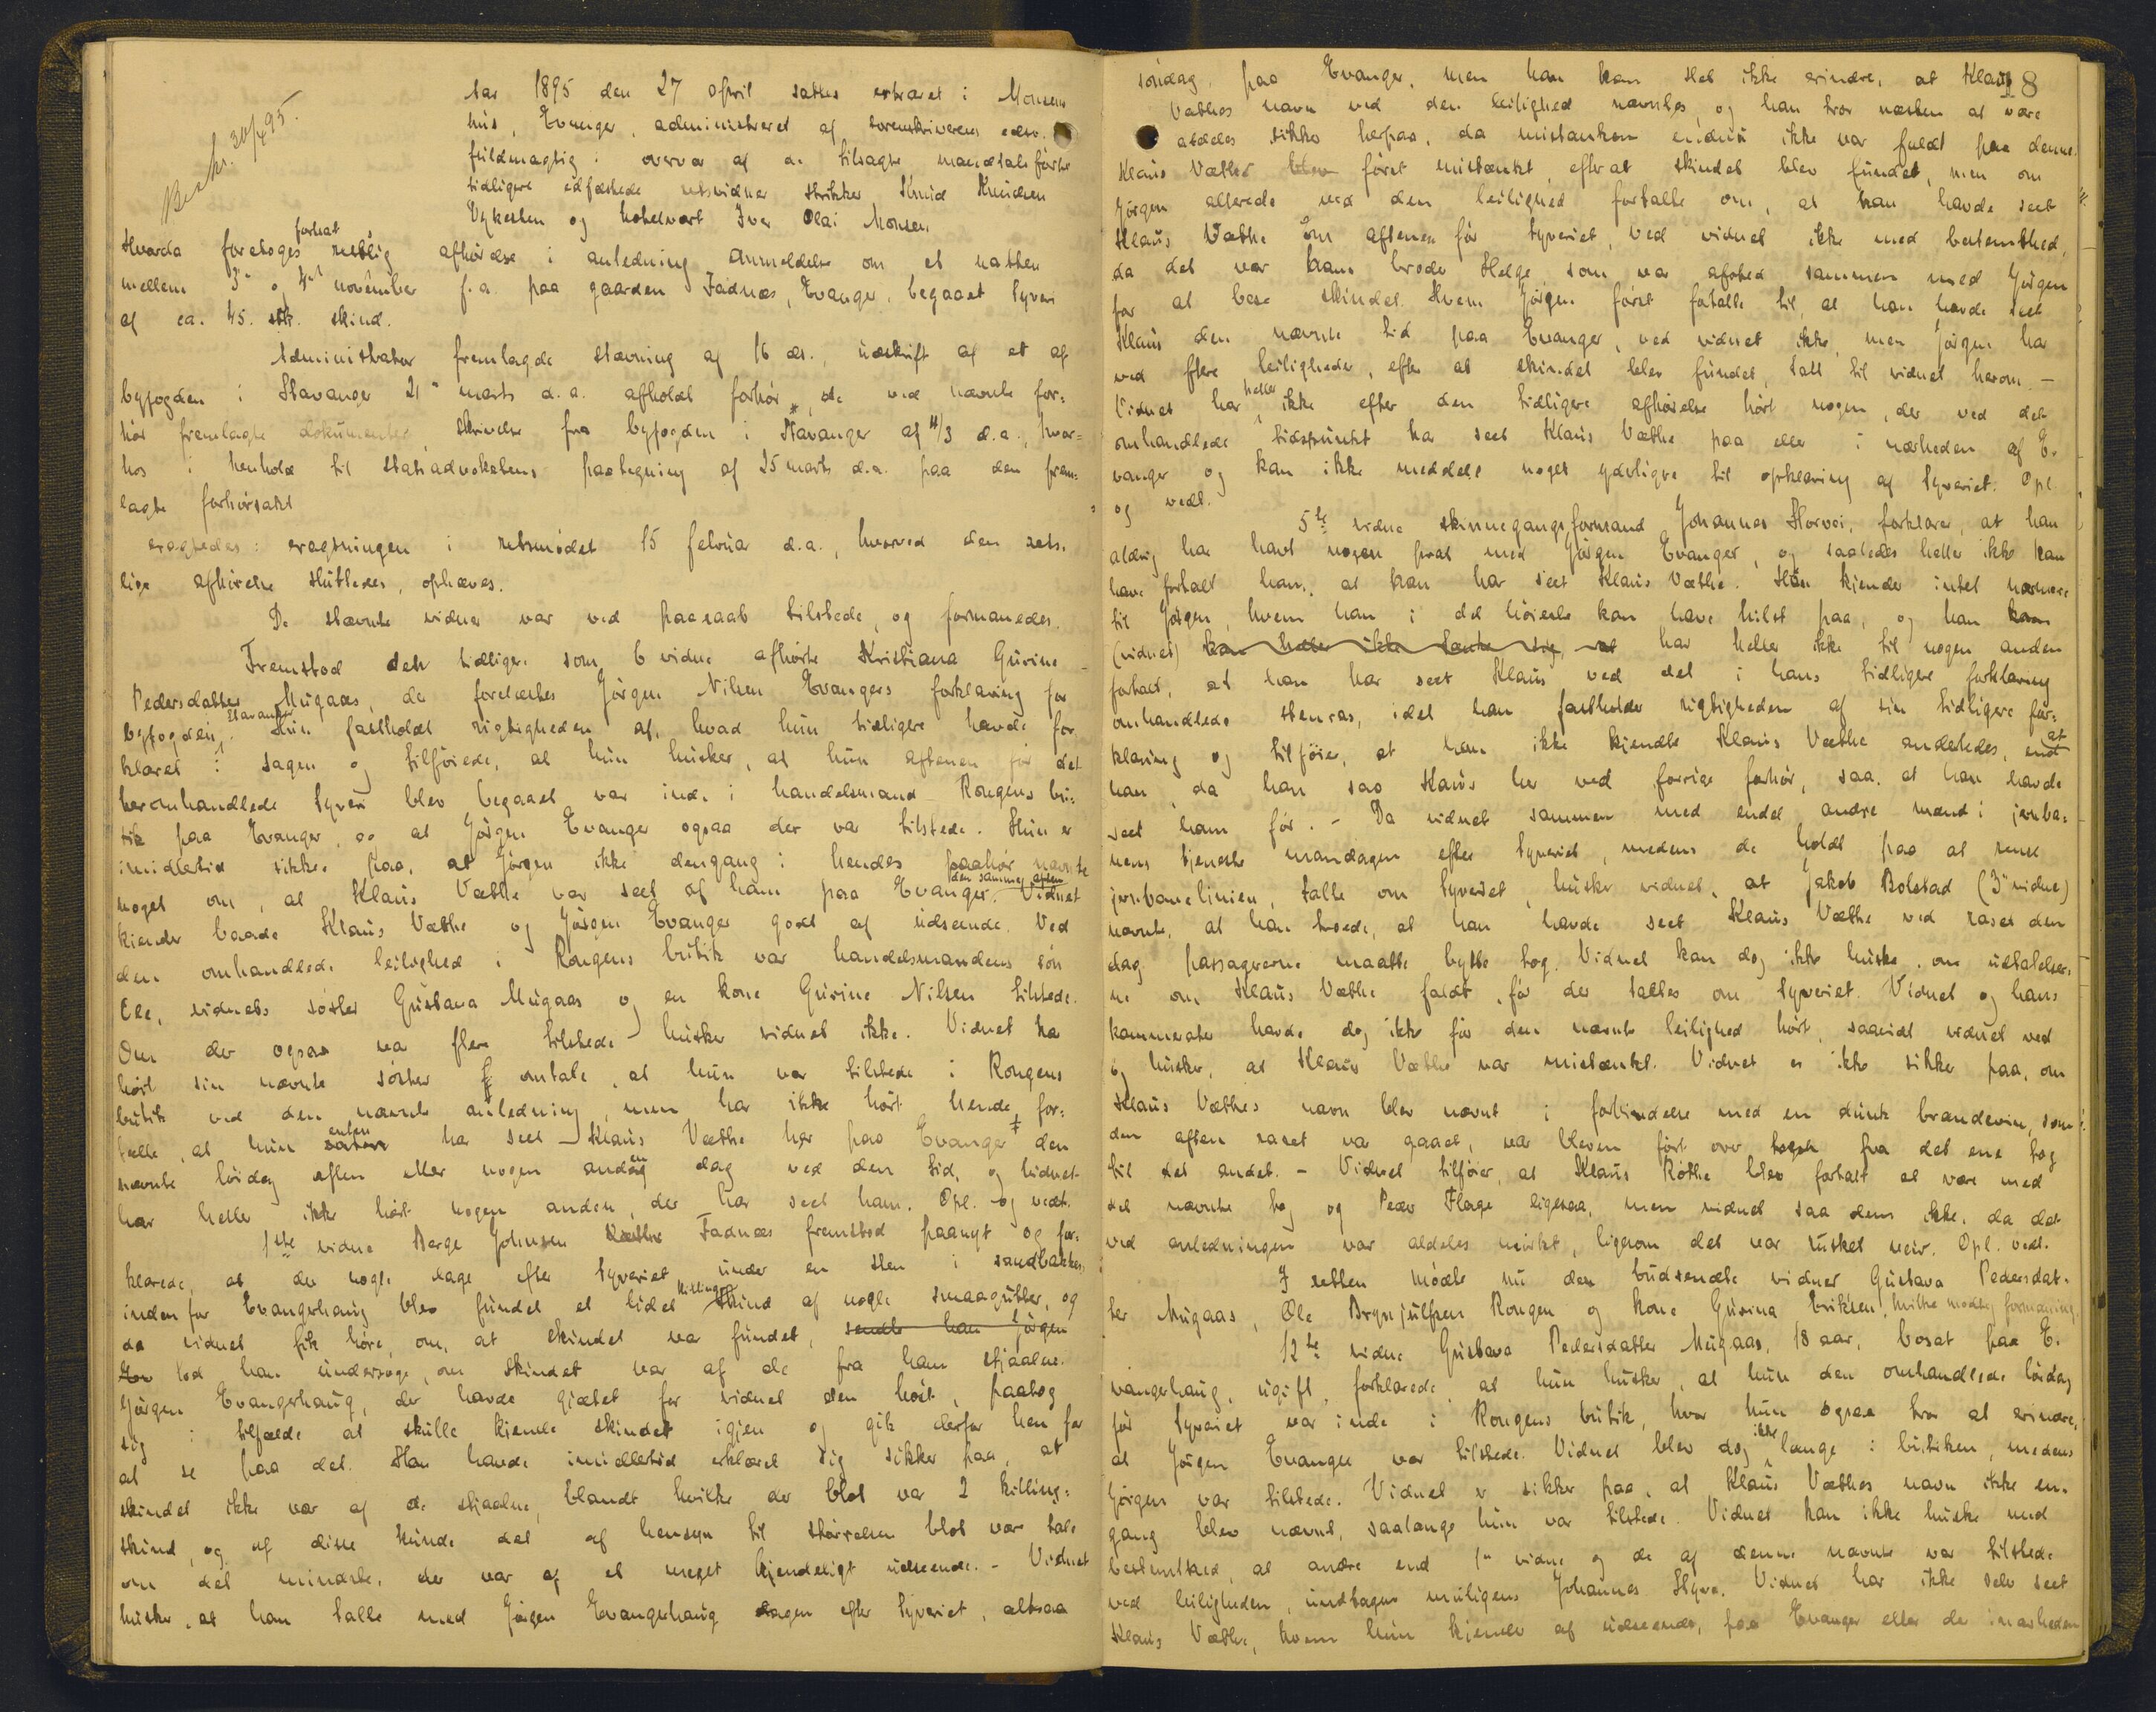 Besk. 30/4 95.
Aar 1895 den 27 april sattes extraret i Monsens
hus, Evanger, administreret af sorenskriverens edsv.
fuldmægtig i overvær af de tilsagte mandtalsførte
tidligere edfæstede retsvidner strikker Knud Knudsen
Vykesten og hotelvært Iver Olai Monsen
Hvorda foretoges fortsat retslig afhørelse i anledning anmeldelse om et natten
mellem 3die og 4de november f.a. paa gaarden Fadnæs, Evanger, begaaet tyveri
af ca. 45 stk. skind.
Administrator fremlagde stævning af 16 ds., udskrift af et af
byfogden i Stavanger 21 marts d.a. afholdt forhør, de ved nævnte for-
hør fremlagte dokumenter, skrivelse fra byfogden i Stavanger af /3 d.a., hvor-
hos i henhold til statsadvokatens paategning af 25 marts d.a. paa den frem-
lagte forhørsakt
eragtedes: eragtningen i retsmødet 15 februar d.a., hvorved den rets-
lige afhørelse sluttedes, ophæves.
De stævnte vidner var ved paaraab tilstede, og formanedes.
Fremstod den tidligere som 6 vidne afhørte Kristiana Gurine
Pedersdatter Mugaas, der forelæstes Jørgen Nilsen Evangers forklaring for
byfogden, Stavanger. Hun fastholdt rigtigheden af, hvad hun tidligere havde for
klaret i sagen og tilføiede, at hun husker, at hun aftenen før det
heromhandlede tyveri blev begaaet var inde i handelsmand Rongens bu-
tik paa Evanger, og at Jørgen Evanger ogsaa der var tilstede. Hun er
imidlertid sikker paa, at Jørgen ikke dengang i hendes paahør nævnte
noget om, at Klaus Væthe var seet af ham paa Evanger den samme aften. Vidnet
kjender baade Klaus Væthe og Jørgen Evanger godt af udseende. Ved
den omhandlede leilighed i Rongens butik var handelsmandens søn
Ole, vidnets søster Gustava Mugaas og en kone Gurine Nilsen tilstede.
Om der ogsaa var flere tilstede husker vidnet ikke. Vidnet har
hørt sin nævnte søster omtale, at hun var tilstede i Rongens
butik ved den nævnte anledning, men har ikke hørt hende for-
tælle, at hun enten har seet Klaus Væthe her paa Evanger den
nævnte lørdag aften eller nogen anden dag ved den tid, og vidnet
har heller ikke hørt nogen anden, der har seet ham. Opl. og vedt.
1ste vidne Berge Johnsen Fadnæs fremstod paanyt og for-
klarede, at der nogle dage efter tyveriet under en sten i sandbakken
inden for Evangerhaug blev fundet et lidet killingskind af nogle smaagutter, og
da vidnet fik høre om, at skindet var fundet, sendte han Jørgen
lod han undersøge, om skindet var af de fra ham stjaalne.
Jørgen Evangerhaug, der havde gjætet for vidnet den høst, paatog
sig i tilfælde at skulle kjende skindet igjen og gik derfor hen for
at se paa det. Han havde imidlertid erklæret sig sikker paa, at
skindet ikke var af de stjaalne, blandt hvilke der blot var 2 killing-
skind, og af disse kunde det af hensyn til størrelsen blot være tale
om det mindste, der var af et meget kjendeligt udseende. - Vidnet
husker, at han talte med Jørgen Evangerhaug dagen efter tyveriet, altsaa
18
søndag, paa Evanger, men han kan slet ikke erindre, at Klaus
Væthes navn ved den leilighed nævntes, og han tror næsten at være
aldeles sikker herpaa, da mistanken endnu ikke var faldt paa denne.
Klaus Væthe blev først mistænkt, efterat skindet blev fundet, men om
Jørgen allerede ved den leilighed fortalte om, at han havde seet
Klaus Væthe om aftenen før tyveriet, ved vidnet ikke med bestemthed,
da det var hans broder Helge, som var afsted sammen med Jørgen
for at bese skindet. Hvem Jørgen først fortalte til, at han havde seet
Klaus den nævnte tid paa Evanger, ved vidnet ikke, men Jørgen har
ved flere leiligheder, efter at skindet blev fundet, talt til vidnet herom. -
Vidnet har heller ikke efter den tidligere afhørelse hørt nogen, der ved det
omhandlede tidspunkt har seet Klaus Væthe paa eller i nærheden af E-
vanger og kan ikke meddele noget yderligere til opklaring af tyveriet. Opl.
og vedt.
5te vidne skinnegangsformand Johannes Horvei, forklarer, at han
aldrig har havt nogen prat med Jørgen Evanger, og saaledes heller ikke kan
have fortalt ham, at han har seet Klaus Væthe. Han kjender intet nærmere
til Jørgen, hvem han i det høieste kan have hilst paa, og han kan
(vidnet) kan heller ikke tænke sig, at har heller ikke til nogen anden
fortalt, at han har seet Klaus ved det i hans tidligere forklaring
omhandlede stenras, idet han fastholder rigtigheden af sin tidligere for-
klaring og tilføier, at han ikke kjendte Klaus Væthe anderledes, end at
han, da han saa Klaus her ved forrige forhør, saa, at han havde
seet ham før. - Da vidnet sammen med endel andre mænd i jernba-
nens tjeneste mandagen efter tyveriet, medens de holdt paa at rense
jernbanelinien, talte om tyveriet, husker vidnet, at Jakob Bolstad (3die vidne)
nævnte, at han troede, at han havde seet Klaus Væthe ved raset den
dag passagererne maatte bytte tog. Vidnet kan dog ikke huske, om udtalelser-
ne om Klaus Væthe faldt, før der taltes om tyveriet. Vidnet og hans
kammerater havde dog ikke før den nævnte leilighed hørt, saavidt vidnet ved
og husker, at Klaus Væthe var mistænkt. Vidnet er ikke sikker paa, om
Klaus Væthes navn blev nævnt i forbindelse med en dunk brændevin, som
den aften raset var gaaet, var bleven ført over fra det ene tog
til det andet. - Vidnet tilføier, at Klaus Røthe blev fortalt at være med
det nævnte tog og Peder Flage ligesaa, men vidnet saa dem ikke, da det
ved anledningen var aldeles mørkt, ligesom det var rusket veir. Opl. vedt.
I retten mødte nu de budsendte vidner Gustava Pedersdat-
ter Mugaas, Ole Brynjulfsen Rongen og kone Gurina Eriksen, hvilke modtog formaning.
12te vidne Gustava Pedersdatter Mugaas, 18 aar, bosat paa E-
vangerhaug, ugift, forklarede, at hun husker, at hun den omhandlede lørdag
før tyveriet var inde i Rongens butik, hvor hun ogsaa tror at erindre,
at Jørgen Evanger var tilstede. Vidnet blev dog ikke længe i butiken, medens
Jørgen var tilstede. Vidnet er sikker paa, at Klaus Væthes navn ikke en-
gang blev nævnt, saalænge hun var tilstede. Vidnet kan ikke huske med
bestemthed, at andre end 1ste vidne og de af denne nævnte var tilstede
ved leiligheden, undtagen muligens Johannes Styve. Vidnet har ikke selv seet
Klaus Væthe, hvem hun kjender af udseende, paa Evanger eller der i nærheden